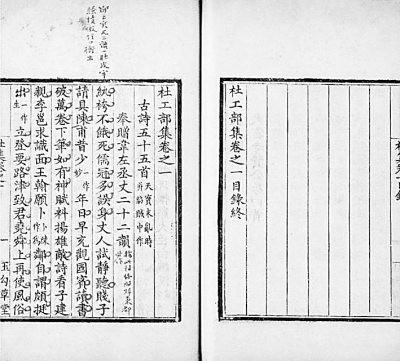 杜工部集卷之一目錄終
杜工部集卷之一
古詩五十五首天寶末亂時
并陷賊中作
奉贈韋左丞丈二十二韻
紈袴不餓死儒冠多誤身丈人試靜聽賤子
請具陳甫昔少一作年日早充觀國賓讀書
破萬卷下筆如有神賦料揚雄敵詩看子建
親李邕求識面王翰願卜一作鄰自謂頗挺
出一作立登要路津致君堯舜上再使風俗
杜集卷之一
一
玉勾草堂